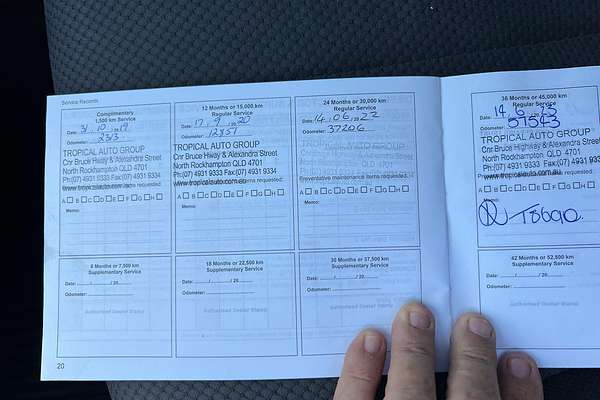 Service Records
Complimentary
1,500 km Service
Date: 31. 10. 2019
Odometer: 2313
TROPICAL AUTO GROUP
Cnr Bruce Hiway & Alexandra Street
North Rockhampton QLD 4701
Ph:(07) 4931 9333 Fax:(07) 4931 9334
www.tropicalauto.com.au
A B C D E F G H
Memo:
12 Months or 15,000 km
Regular Service
Date: 17. 9. 2020
Odometer: 12357
TROPICAL AUTO GROUP
Cnr Bruce Hiway & Alexandra Street
North Rockhampton QLD 4701
Ph:(07) 4931 9333 Fax:(07) 4931 9334
www.tropicalauto.com.au items requested:
A B C D E F G H
Memo:
24 Months or 30,000 km
Regular Service
Date: 14. 06. 2022
Odometer: 37206
Preventative maintenance items requested:
A B C D E F G H
Memo:
36 Months or 45,000 km
Regular Service
Date: 14. 6. 23
Odometer: 57543
TROPICAL AUTO GROUP
Cnr Bruce Highway & Alexandra Street
North Rockhampton QLD 4701
Ph:(07) 4931 9333 Fax:(07) 4931 9334
www.tropicalauto.com.au
A B C D E F G H
Memo:
T8690
6 Months or 7,500 km
Supplementary Service
Date: / / 20
Odometer:
Authorised Dealer Stamp
18 Months or 22,500 km
Supplementary Service
Date: / / 20
Odometer:
Authorised Dealer Stamp
30 Months or 37,500 km
Supplementary Service
Date: / / 20
Odometer:
Authorised Dealer Stamp
42 Months or 52,500 km
Supplementary Service
Date: / / 20
Odometer:
Authorised Dealer Stamp
20